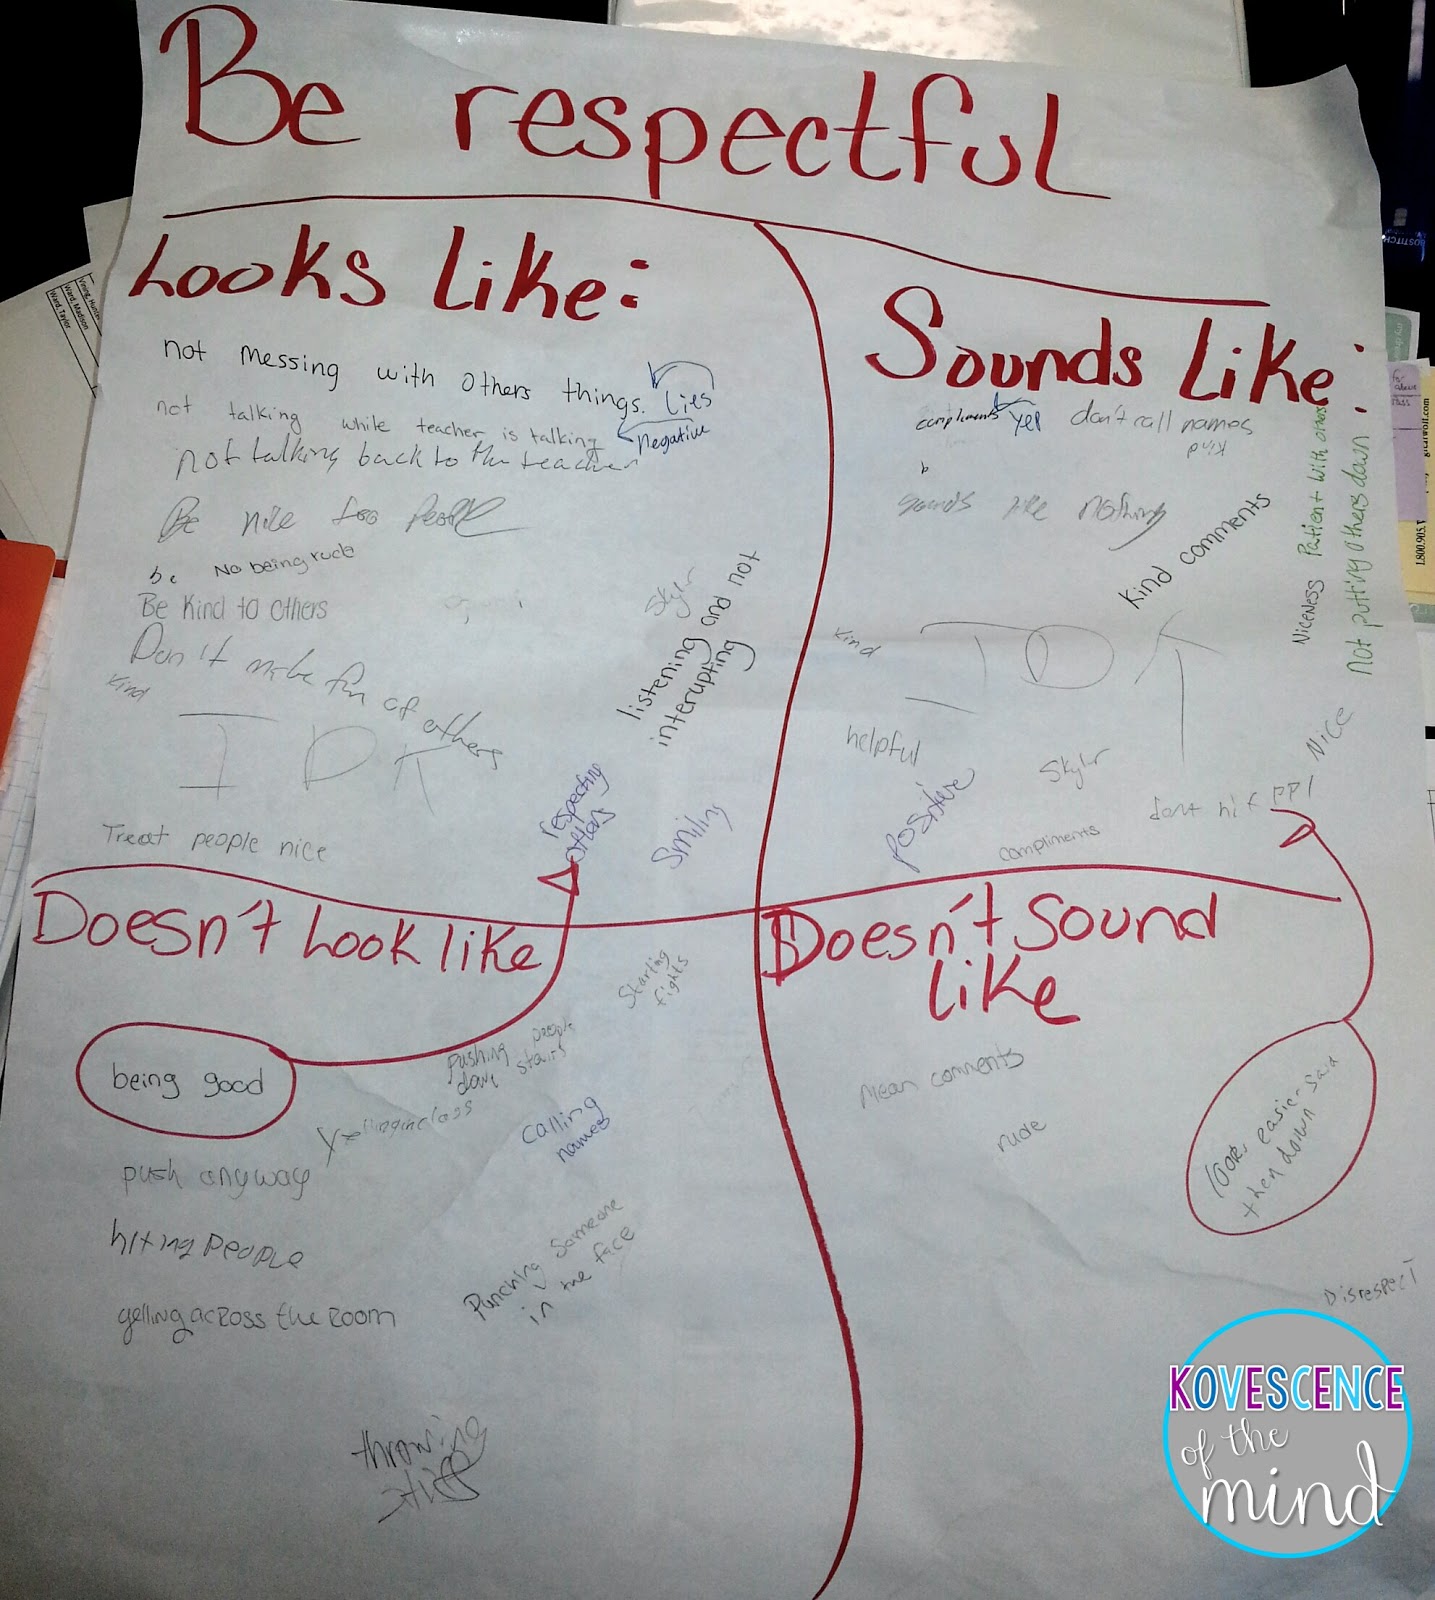 Be respectful
Looks Like:
not messing with others things. Lies
not talking while teacher is talking
negative
not talking back to the teacher
Be nice too People
be No being rude
Be Kind to others
Don't make fun of others
Kind
IDK
Treat people nice
Skyler
listening and not
interupting
respecting
others
smiling
Sounds Like:
compliments yep don't call names
kind
b
sounds like nothing
Kind comments
Niceness Patient with others
Not putting others down
Kind
IDK
helpful
Skyler
Nice
positive
compliments
dont hit ppl
Doesn't Look like
Starting
fights
being good
pushing people
down stairs
Yelling in class
calling
names
push anyway
hiting People
yelling across the room
Punching Someone
in the face
throwing
Doesn't Sound
like
Mean comments
rude
easier said
then down
Disrespect
KOVESCENCE
of the
mind
Vining, Hunter
Ward, Madison
Ward, Taylor
BOSTITCH